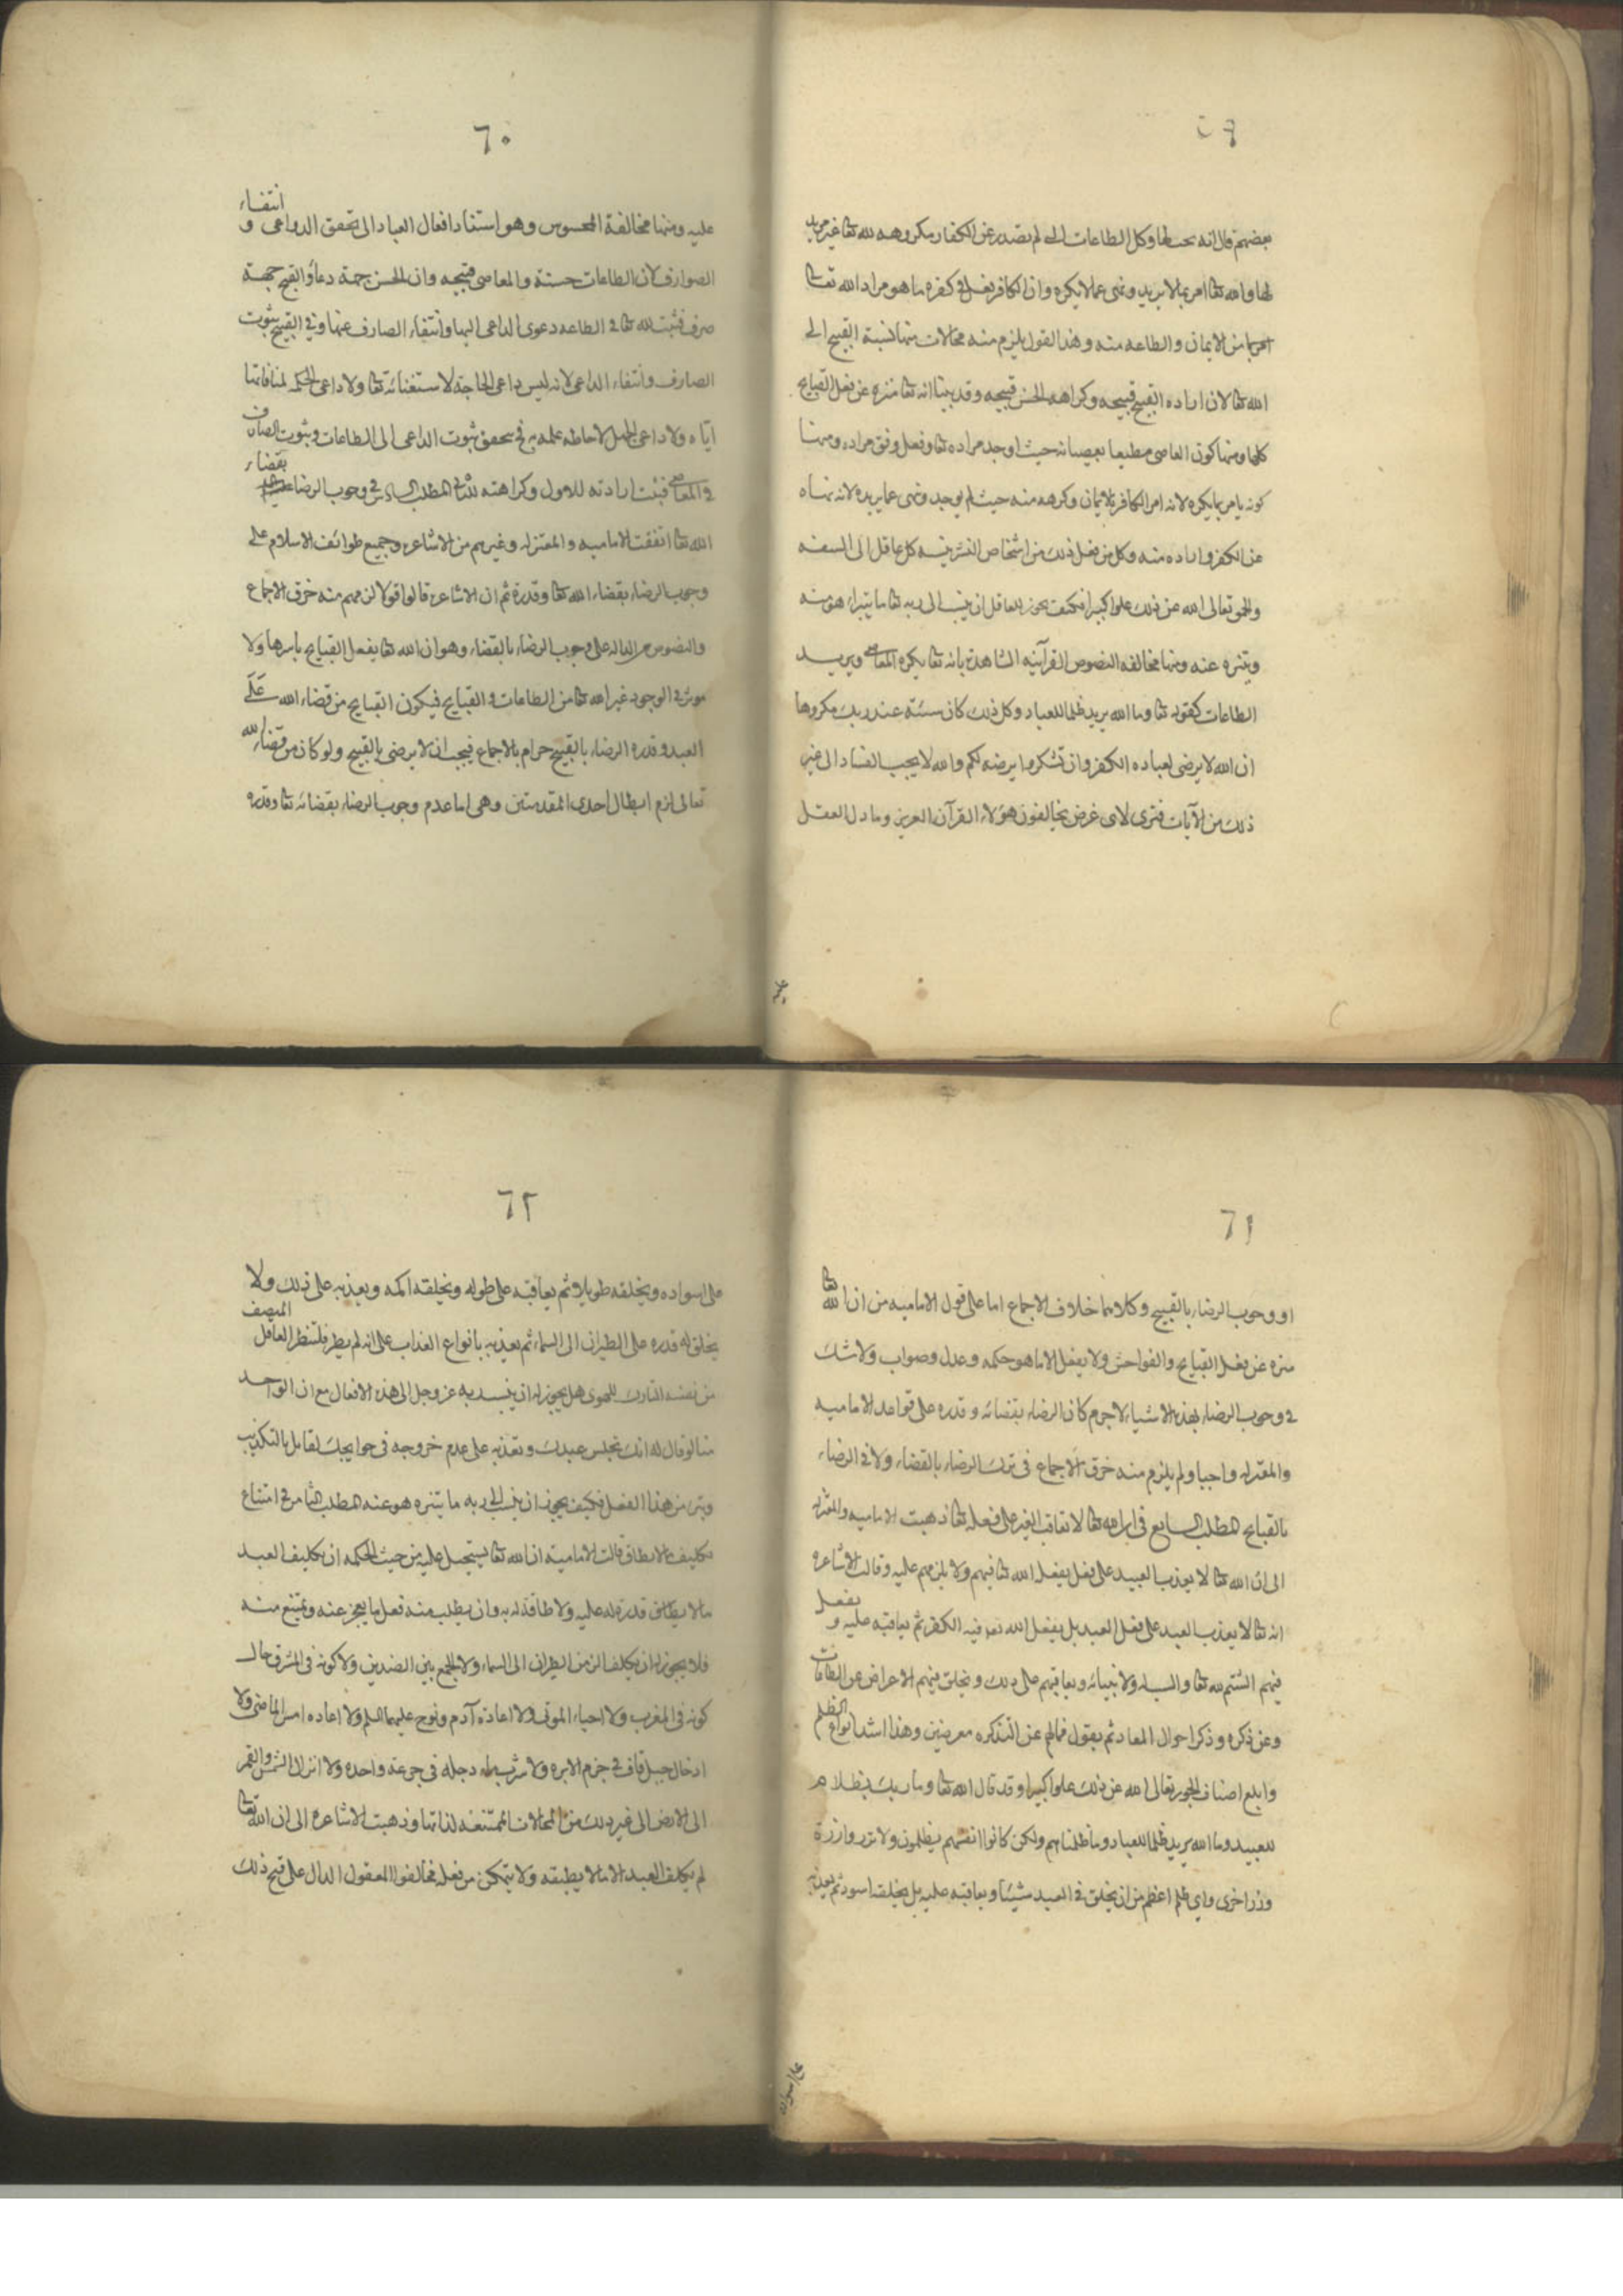 ٥٩
بعضهم قال انه يحبها وكل الطاعات التي لم تصدر عن الكفار مكروهه لله تعا غير مريد
لها والله تعا امر بما لا يريد ونهى عما لا يكره وان الكافر يفعل في كفره ما هو مراد الله تعا
من الايمان والطاعه منه وهذا القول يلزم منه محالات منها نسبة القبيح الى
الله تعا لان اراده القبيح قبيحه وكراهه الحسن قبيحه وقد بينا انه تعا منزه عن فعل القبايح
كلها ومنها كون العاصي مطيعا بعصيانه حيث اوجد مراده تعا وفعل وفق مراده ومنها
كونه يامر بما يكره لانه امر الكافر بالايمان وكرهه منه حيث لم يوجد ونهى عما يريده لانه نهاه
عن الكفر واراده منه وكل من يفعل ذلك من اشخاص البشر ينسبه كل عاقل الى السفه
والحمق تعالى الله عن ذلك علوا كبيرا فكيف يجوز للعاقل ان ينسب الى ربه تعا ما يتبراء هو منه
ويتنزه عنه ومنها مخالفه النصوص القرآنيه الشاهدة بانه تعا يكره المعاصي ويريد
الطاعات كقوله تعا وما الله يريد ظلما للعباد وكل ذلك كان سيئه عند ربك مكروها
ان الله لا يرضى لعباده الكفر وان تشكروا يرضه لكم والله لا يحب الفساد الى غير
ذلك من الآيات فترى لاى غرض يخالفون هؤلاء القرآن العزيز وما دل العقل
عليه
٦٠
عليه ومنها مخالفة المحسوس وهو استناد افعال العباد الى تحقق الدواعى و انتفاء
الصوارف لان الطاعات حسنة والمعاصى قبيحه وان الحسن جهة دعاء والقبح جهة
صرف فثبت لله تعا في الطاعه دعوى الداعى اليها وانتفاء الصارف عنها وفي القبيح ثبوت
الصارف وانتفاء الداعى لانه ليس داعى الحاجة لاستغنائه تعا ولا داعى الحكمه لمنافاتها
اياه ولا داعى الجهل لاحاطه علمه به فح يتحقق ثبوت الداعى الى الطاعات وثبوت الصارف
في المعاصي فثبت ارادته للاول وكراهته للثانى المطلب السادس في وجوب الرضا بقضاء
الله تعا اتفقت الاماميه والمعتزله وغيرهم من الاشاعره وجميع طوائف الاسلام على
وجوب الرضاء بقضاء الله تعا وقدره ثم ان الاشاعره قالوا قولا لزمهم منه خرق الاجماع
والنصوص الداله على وجوب الرضاء بالقضاء وهو ان الله تعا يفعل القبايح باسرها ولا
موثر في الوجود غير الله تعا من الطاعات والقبايح فيكون القبايح من قضاء الله على
العبد وقدره الرضاء بالقبيح حرام بالاجماع فيجب ان لا يرضى بالقبيح ولو كان من قضاء الله
تعالى لزم ابطال احدى المقدمتين وهى اما عدم وجوب الرضاء بقضائه تعا وقدره
٦١
او وجوب الرضاء بالقبيح وكلاهما خلاف الاجماع اما على قول الاماميه من ان الله تعا
منزه عن فعل القبايح والفواحش ولا يفعل الا ما هو حكمه وعدل وصواب ولا شك
في وجوب الرضاء بهذه الاشياء لا جرم كان الرضاء بقضائه وقدره على قواعد الاماميه
والمعتزله واجبا ولم يلزم منه خرق الاجماع في ترك الرضاء بالقضاء ولا في الرضاء
بالقبايح المطلب السابع في ان الله تعا لا يعاقب الغير على فعله تعا ذهبت الاماميه والمعتزله
الى ان الله تعا لا يعذب العبيد على فعل يفعله الله تعا فيهم ولا يلومهم عليه وقالت الاشاعره
انه تعا لا يعذب العبد على فعل العبد بل يفعل الله تعا فيه الكفر ثم يعاقبه عليه و يفعل
فيهم الشتم لله تعا والسب له ولانبيائه ويعاقبهم على ذلك ويخلق فيهم الاعراض عن الطاعات
وعن ذكره وذكر احوال المعاد ثم يقول فما لهم عن التذكره معرضين وهذا اشد انواع الظلم
وابلغ اصناف الجور تعالى الله عن ذلك علوا كبيرا وقد قال الله تعا وما ربك بظلام
للعبيد وما الله يريد ظلما للعباد وما ظلمناهم ولكن كانوا انفسهم يظلمون ولا تزر وازرة
وزر اخرى واي ظلم اعظم من ان يخلق في العبد شيئا ويعاقبه عليه بل يخلقه اسود ثم يعذبه
على سواده
٦٢
على سواده ويخلقه طويلا ثم يعاقبه على طوله ويخلقه اكمه ويعذبه على ذلك ولا
يخلق له قدره على الطيران الى السماء ثم يعذبه بانواع العذاب على انه لم يطر فلينظر العاقل المنصف
من نفسه التارك للهوى هل يجوز له ان ينسب ربه عز وجل الى هذه الافعال مع ان الواحد
منا لو قال له انك تحبس عبدك وتعذبه على عدم خروجه في حوايجك لقابل بالتكذيب
وتبرء من هذا الفعل فكيف يجوز ان ينسب الى ربه ما يتنزه هو عنه المطلب الثامن في امتناع
تكليف ما لا يطاق قالت الاماميه ان الله تعا يستحيل عليه من حيث الحكمه ان يكليف العبد
ما لا يطاق قدرة له عليه ولا طاقة له به وان يطلب منه فعل ما يعجز عنه ويمتنع منه
فلا يجوز له ان يكلف الزمن الطيران الى السماء ولا الجمع بين الضدين ولا كونه في المشرق حال
كونه في المغرب ولا احياء الموتى ولا اعادة آدم ونوح عليهما السلم ولا اعاده امس الماضي ولا
ادخال جبل قاف في خرم الابره ولا شرب ماء دجله في جرعة واحده ولا انزال الشمس والقمر
الى الارض الى غير ذلك من المحالات الممتنعه لذاتها وذهبت الاشاعره الى ان الله تعا
لم يكلف العبد الا ما لا يطيقه ولا يتمكن من فعله فخالفوا المعقول الدال على قبح ذلك